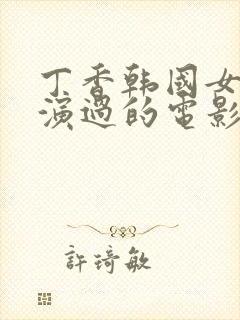 丁香韩國女
演過的電影
許琦敏